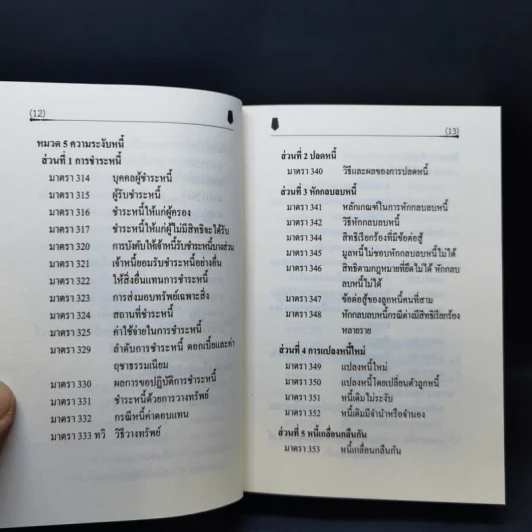 (12)
หมวด 5 ความระงับหนี้
ส่วนที่ 1 การชำระหนี้
มาตรา 314 บุคคลผู้ชำระหนี้
มาตรา 315 ผู้รับชำระหนี้
มาตรา 316 ชำระหนี้ให้แก่ผู้ครอง
มาตรา 317 ชำระหนี้ให้แก่ผู้ไม่มีสิทธิจะได้รับ
มาตรา 320 การบังคับให้เจ้าหนี้รับชำระหนี้บางส่วน
มาตรา 321 เจ้าหนี้ยอมรับชำระหนี้อย่างอื่น
มาตรา 322 ให้สิ่งอื่นแทนการชำระหนี้
มาตรา 323 การส่งมอบทรัพย์เฉพาะสิ่ง
มาตรา 324 สถานที่ชำระหนี้
มาตรา 325 ค่าใช้จ่ายในการชำระหนี้
มาตรา 329 ลำดับการชำระหนี้ ดอกเบี้ยและค่า
ฤชาธรรมเนียม
มาตรา 330 ผลการขอปฏิบัติการชำระหนี้
มาตรา 331 ชำระหนี้ด้วยการวางทรัพย์
มาตรา 332 กรณีหนี้ค่าตอบแทน
มาตรา 333 ทวิ วิธีวางทรัพย์
(13)
ส่วนที่ 2 ปลดหนี้
มาตรา 340 วิธีและผลของการปลดหนี้
ส่วนที่ 3 หักกลบลบหนี้
มาตรา 341 หลักเกณฑ์ในการหักกลบลบหนี้
มาตรา 342 วิธีหักกลบลบหนี้
มาตรา 344 สิทธิเรียกร้องที่มีข้อต่อสู้
มาตรา 345 มูลหนี้ไม่ชอบหักกลบลบหนี้ไม่ได้
มาตรา 346 สิทธิตามกฎหมายที่ยึดไม่ได้ หักกลบ
ลบหนี้ไม่ได้
มาตรา 347 ข้อต่อสู้ของลูกหนี้คนที่สาม
มาตรา 348 หักกลบลบหนี้กรณีต่างมีสิทธิเรียกร้อง
หลายราย
ส่วนที่ 4 การแปลงหนี้ใหม่
มาตรา 349 แปลงหนี้ใหม่
มาตรา 350 แปลงหนี้โดยเปลี่ยนตัวลูกหนี้
มาตรา 351 หนี้เดิมไม่ระงับ
มาตรา 352 หนี้เดิมมีจำนำหรือจำนอง
ส่วนที่ 5 หนี้เกลื่อนกลืนกัน
มาตรา 353 หนี้เกลื่อนกลืนกัน